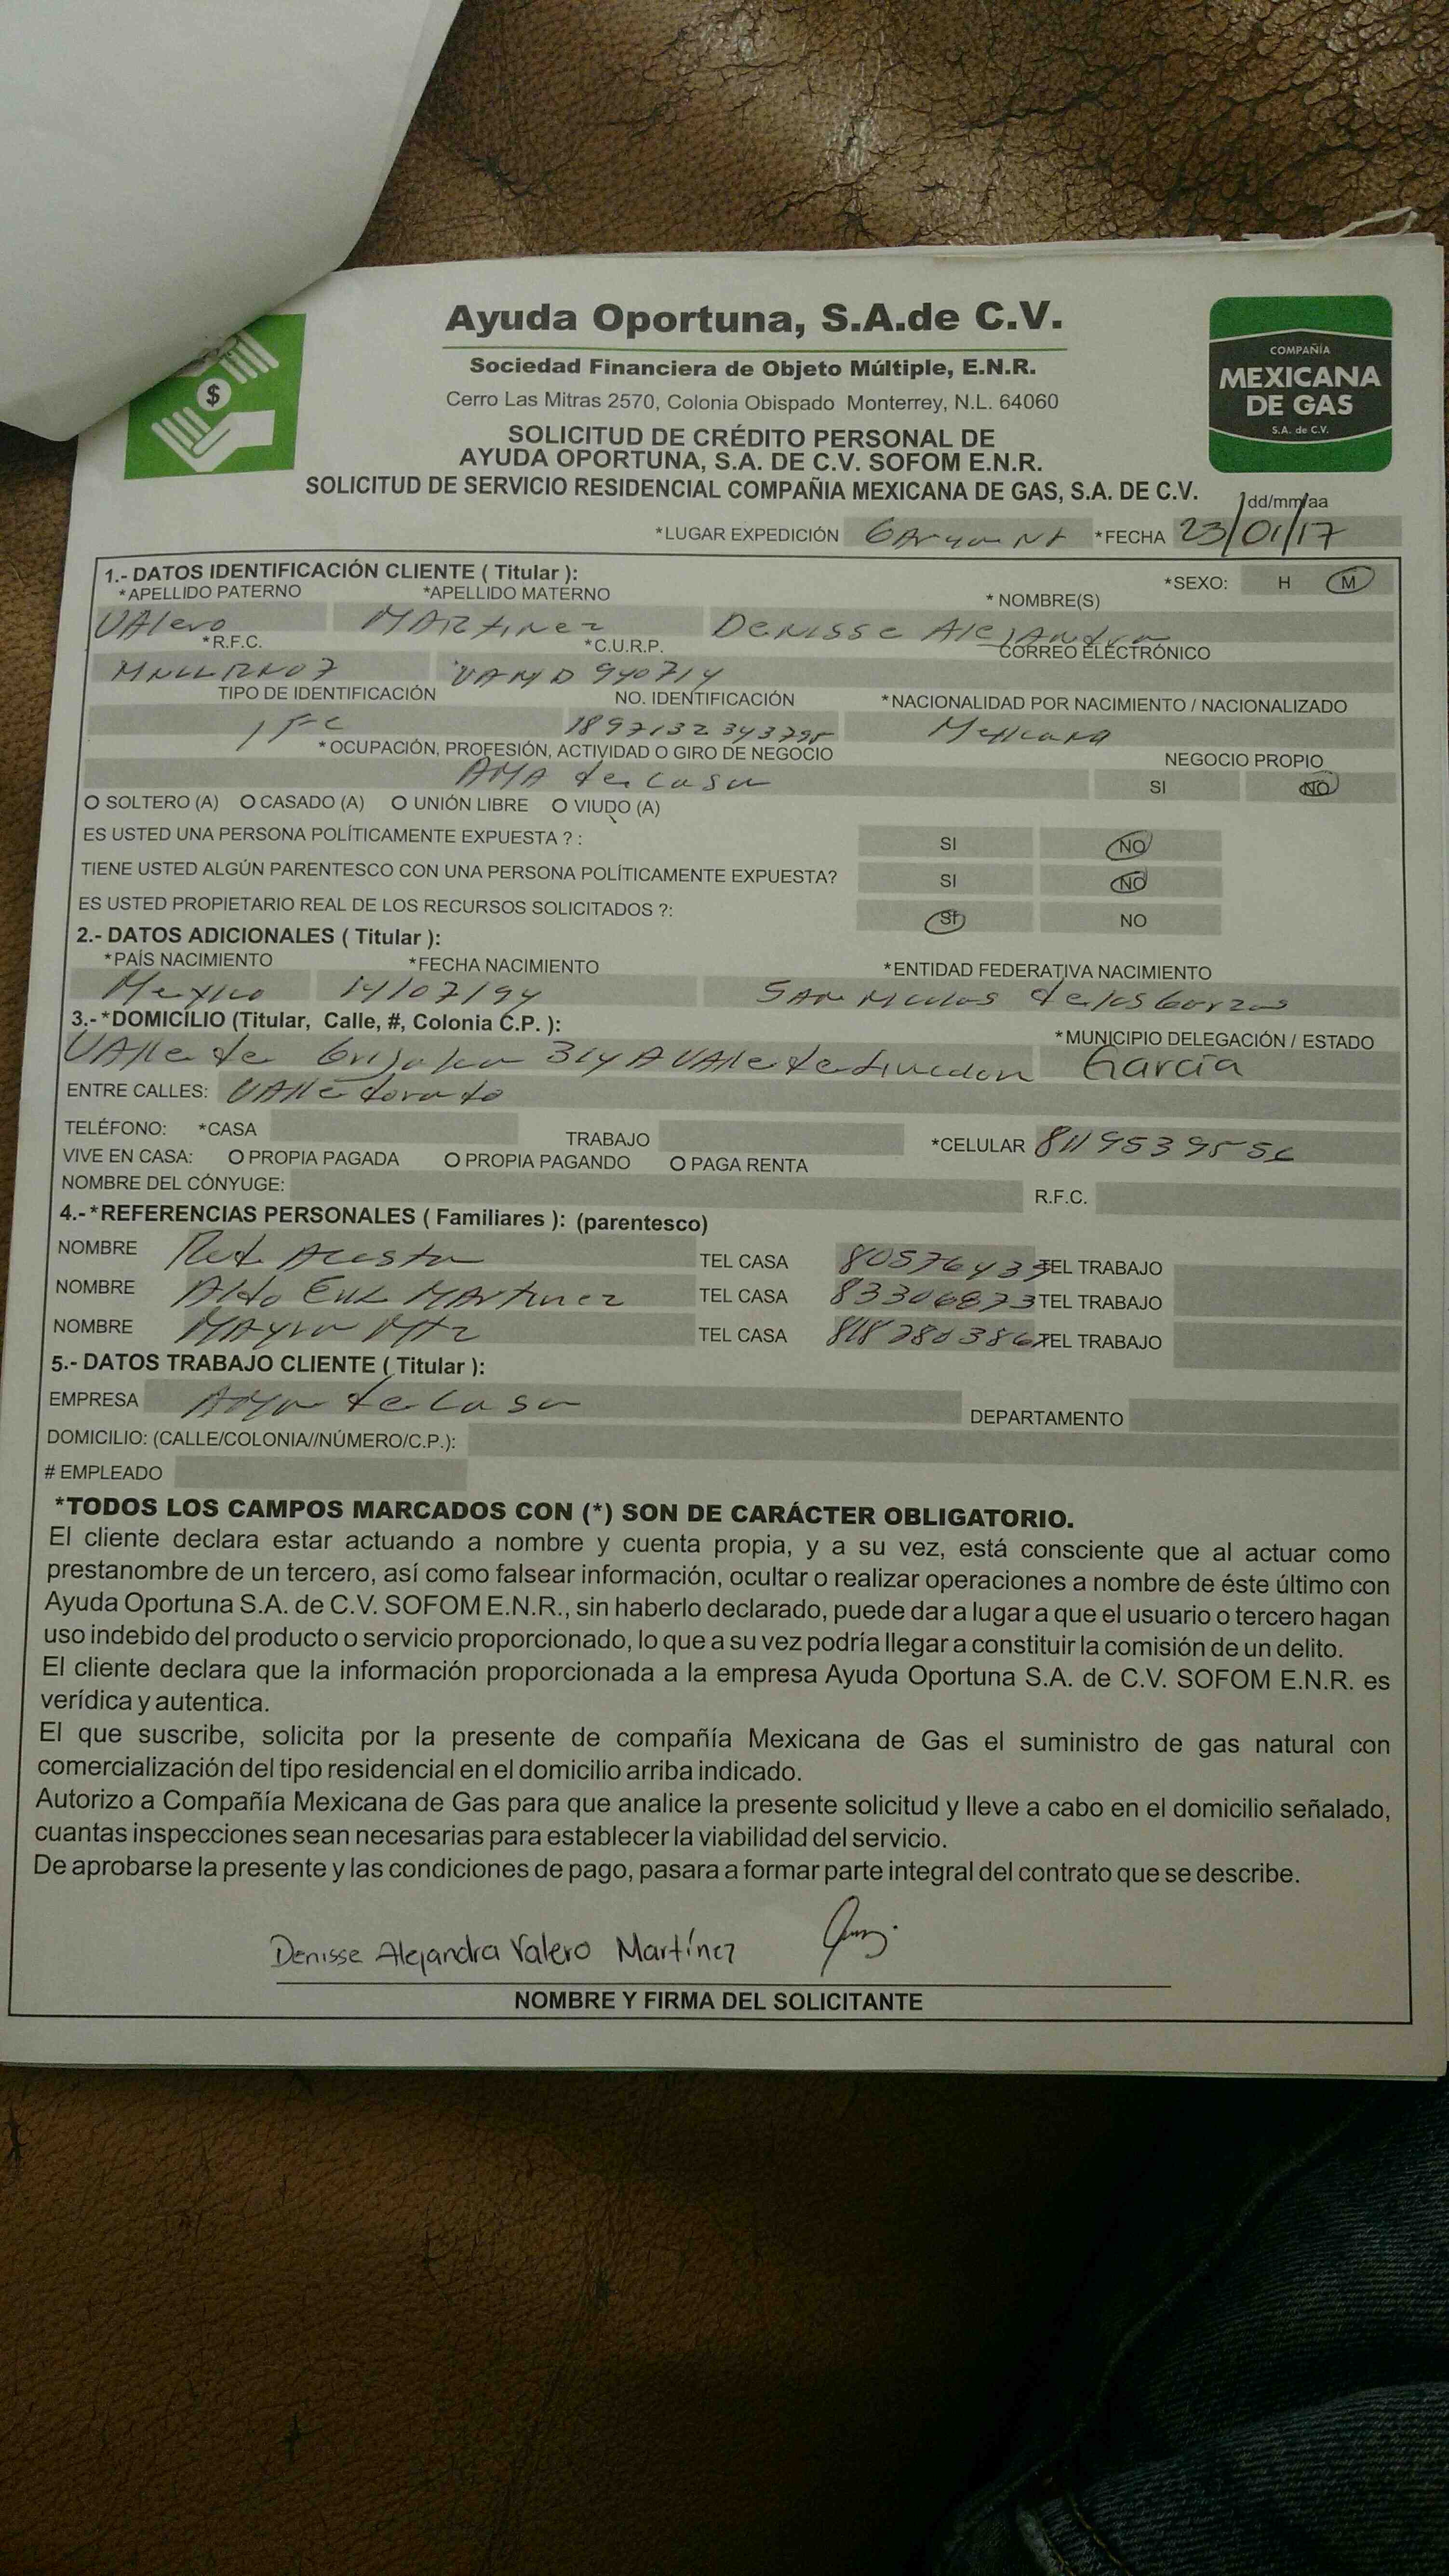 Ayuda Oportuna, S.A.de C.V.
Sociedad Financiera de Objeto Múltiple, E.N.R.
Cerro Las Mitras 2570, Colonia Obispado Monterrey, N.L. 64060
$
COMPAÑÍA
MEXICANA
DE GAS
S.A. de C.V.
SOLICITUD DE CRÉDITO PERSONAL DE
AYUDA OPORTUNA, S.A. DE C.V. SOFOM E.N.R.
SOLICITUD DE SERVICIO RESIDENCIAL COMPAÑIA MEXICANA DE GAS, S.A. DE C.V.
dd/mm/aa
*LUGAR EXPEDICIÓN *FECHA 23/01/17
1.- DATOS IDENTIFICACIÓN CLIENTE ( Titular ): *SEXO: H M
*APELLIDO PATERNO *APELLIDO MATERNO * NOMBRE(S)
VAlero MARtinez Denisse Alejandra
*R.F.C. *C.U.R.P. CORREO ELECTRÓNICO
VAMD 940714
TIPO DE IDENTIFICACIÓN NO. IDENTIFICACIÓN *NACIONALIDAD POR NACIMIENTO / NACIONALIZADO
IFE Mexicana
* OCUPACIÓN, PROFESIÓN, ACTIVIDAD O GIRO DE NEGOCIO NEGOCIO PROPIO
AMA de casa SI NO
O SOLTERO (A) O CASADO (A) O UNIÓN LIBRE O VIUDO (A)
ES USTED UNA PERSONA POLÍTICAMENTE EXPUESTA ? : SI NO
TIENE USTED ALGÚN PARENTESCO CON UNA PERSONA POLÍTICAMENTE EXPUESTA? SI NO
ES USTED PROPIETARIO REAL DE LOS RECURSOS SOLICITADOS ?: SI NO
2.- DATOS ADICIONALES ( Titular ):
*PAÍS NACIMIENTO *FECHA NACIMIENTO *ENTIDAD FEDERATIVA NACIMIENTO
Mexico 14/07/94 San Nicolas de los Garzas
3.-*DOMICÍLIO (Titular, Calle, #, Colonia C.P. ): *MUNICIPIO DELEGACIÓN / ESTADO
VAlle de García
ENTRE CALLES: VAlle dorado
TELÉFONO: *CASA TRABAJO *CELULAR 8119539556
VIVE EN CASA: O PROPIA PAGADA O PROPIA PAGANDO O PAGA RENTA
NOMBRE DEL CÓNYUGE: R.F.C.
4.-*REFERENCIAS PERSONALES ( Familiares ): (parentesco)
NOMBRE Acosta TEL CASA TEL TRABAJO
NOMBRE Aldo Erik MArtinez TEL CASA TEL TRABAJO
NOMBRE MAyra Mtz TEL CASA TEL TRABAJO
5.- DATOS TRABAJO CLIENTE ( Titular ):
EMPRESA Ama de casa DEPARTAMENTO
DOMICILIO: (CALLE/COLONIA//NÚMERO/C.P.):
# EMPLEADO
*TODOS LOS CAMPOS MARCADOS CON (*) SON DE CARÁCTER OBLIGATORIO.
El cliente declara estar actuando a nombre y cuenta propia, y a su vez, está consciente que al actuar como
prestanombre de un tercero, así como falsear información, ocultar o realizar operaciones a nombre de éste último con
Ayuda Oportuna S.A. de C.V. SOFOM E.N.R., sin haberlo declarado, puede dar a lugar a que el usuario o tercero hagan
uso indebido del producto o servicio proporcionado, lo que a su vez podría llegar a constituir la comisión de un delito.
El cliente declara que la información proporcionada a la empresa Ayuda Oportuna S.A. de C.V. SOFOM E.N.R. es
verídica y autentica.
El que suscribe, solicita por la presente de compañía Mexicana de Gas el suministro de gas natural con
comercialización del tipo residencial en el domicilio arriba indicado.
Autorizo a Compañía Mexicana de Gas para que analice la presente solicitud y lleve a cabo en el domicilio señalado,
cuantas inspecciones sean necesarias para establecer la viabilidad del servicio.
De aprobarse la presente y las condiciones de pago, pasara a formar parte integral del contrato que se describe.
Denisse Alejandra Valero Martínez
NOMBRE Y FIRMA DEL SOLICITANTE